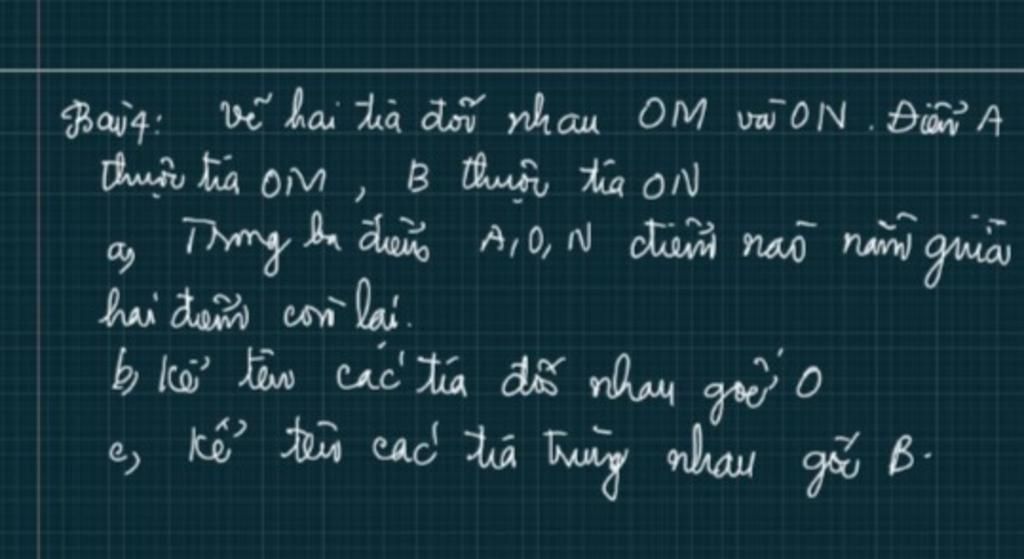 Bài 4: Vẽ hai tia đối nhau OM và ON. Điểm A
thuộc tia OM, B thuộc tia ON
a, Trong ba điểm A, O, N điểm nào nằm giữa
hai điểm còn lại.
b, Kể tên các tia đối nhau gốc O
c, Kể tên các tia trùng nhau gốc B.